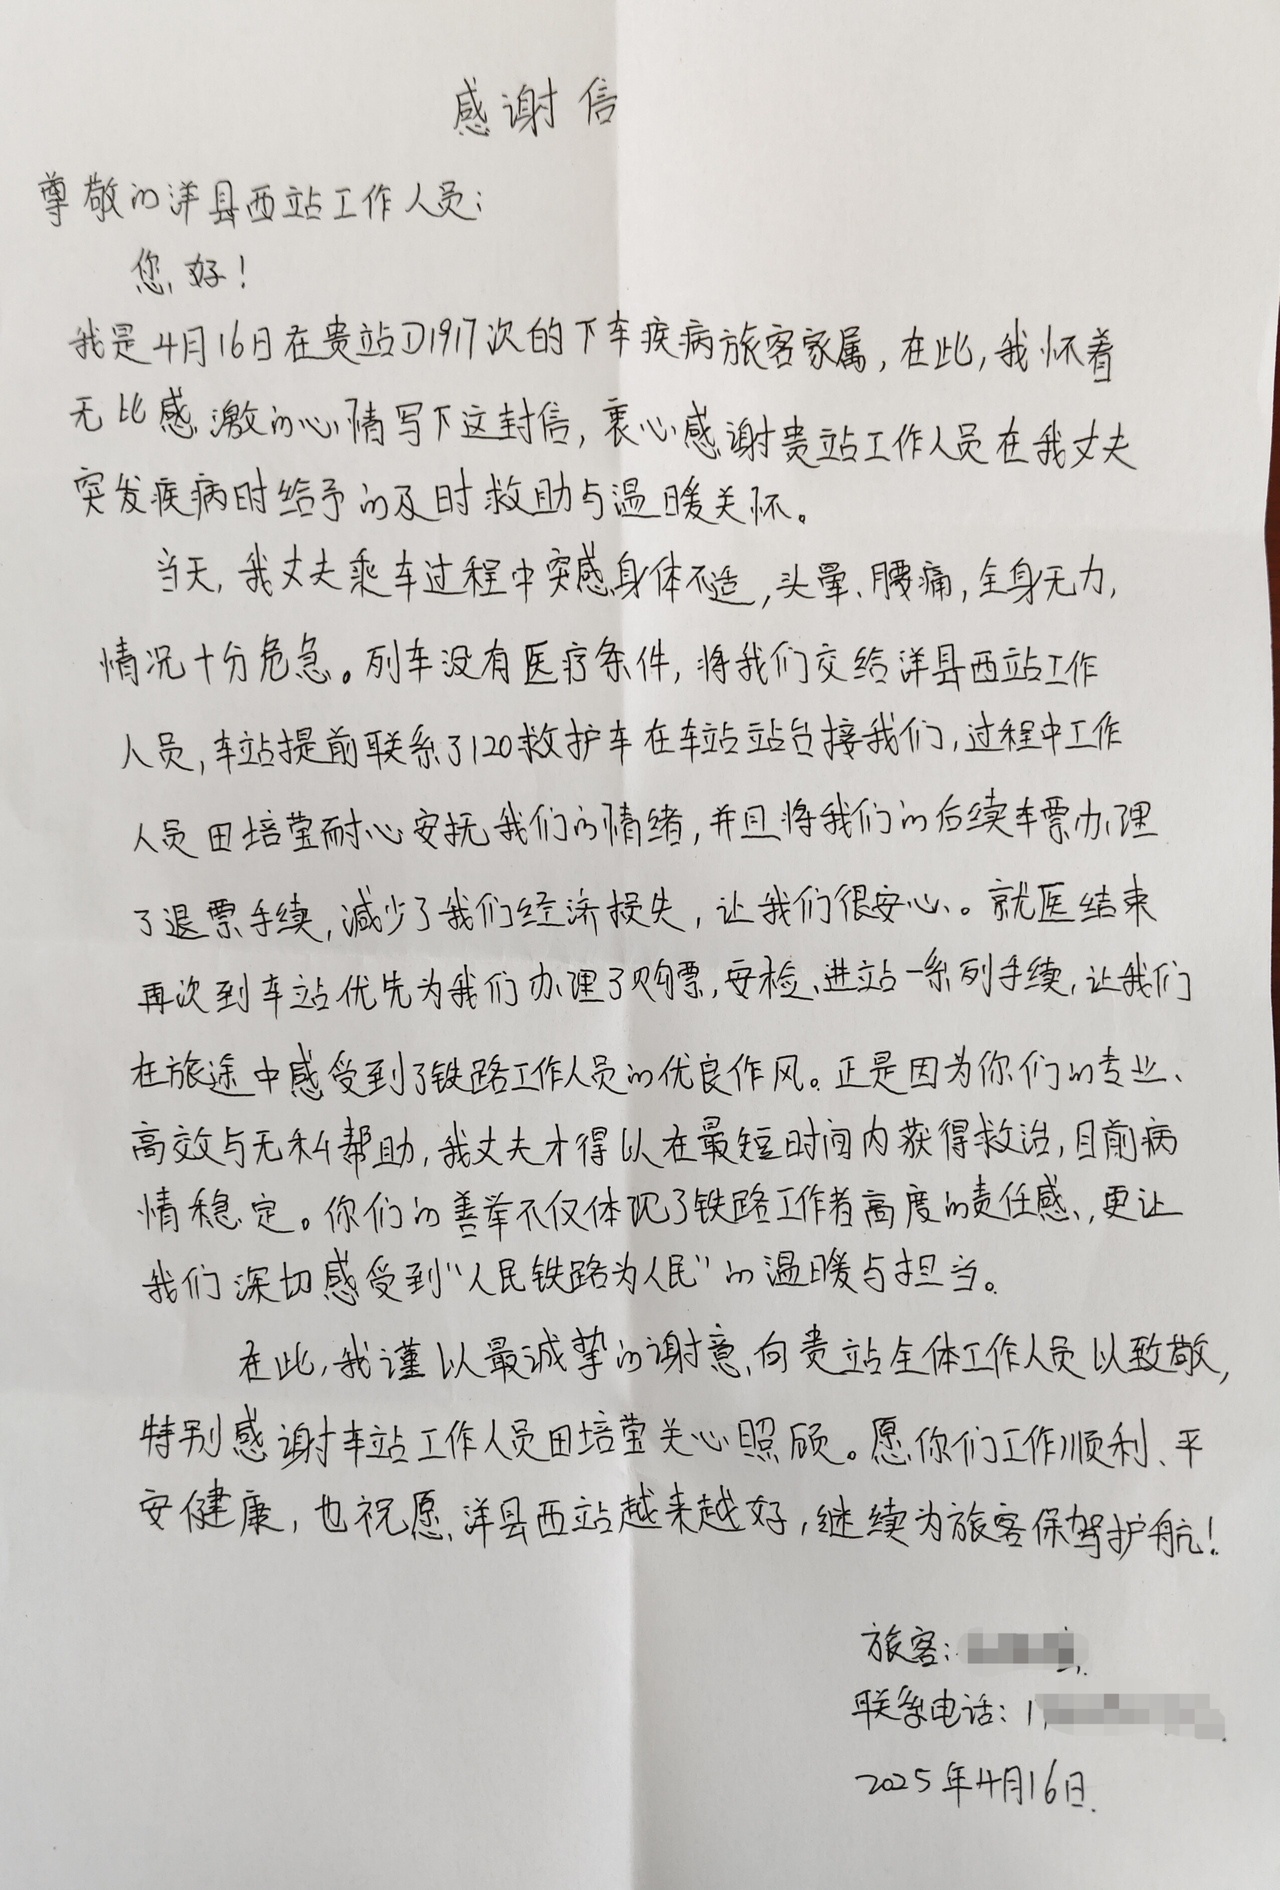 感谢信
尊敬的洋县西站工作人员：
您好！
我是4月16日在贵站D1917次的下车疾病旅客家属，在此，我怀着
无比感激的心情写下这封信，衷心感谢贵站工作人员在我丈夫
突发疾病时给予的及时救助与温暖关怀。
当天，我丈夫乘车过程中突感身体不适，头晕、腰痛，全身无力，
情况十分危急。列车没有医疗条件，将我们交给洋县西站工作
人员，车站提前联系了120救护车在车站站台接我们，过程中工作
人员田培莹耐心安抚我们的情绪，并且将我们的后续车票办理
了退票手续，减少了我们经济损失，让我们很安心。就医结束
再次到车站优先为我们办理了购票，安检、进站一系列手续，让我们
在旅途中感受到了铁路工作人员的优良作风。正是因为你们的专业、
高效与无私帮助，我丈夫才得以在最短时间内获得救治，目前病
情稳定。你们的善举不仅体现了铁路工作者高度的责任感，更让
我们深切感受到“人民铁路为人民”的温暖与担当。
在此，我谨以最诚挚的谢意，向贵站全体工作人员以致敬，
特别感谢车站工作人员田培莹关心照顾。愿你们工作顺利、平
安健康，也祝愿洋县西站越来越好，继续为旅客保驾护航！
旅客：
联系电话：1
2025年4月16日.